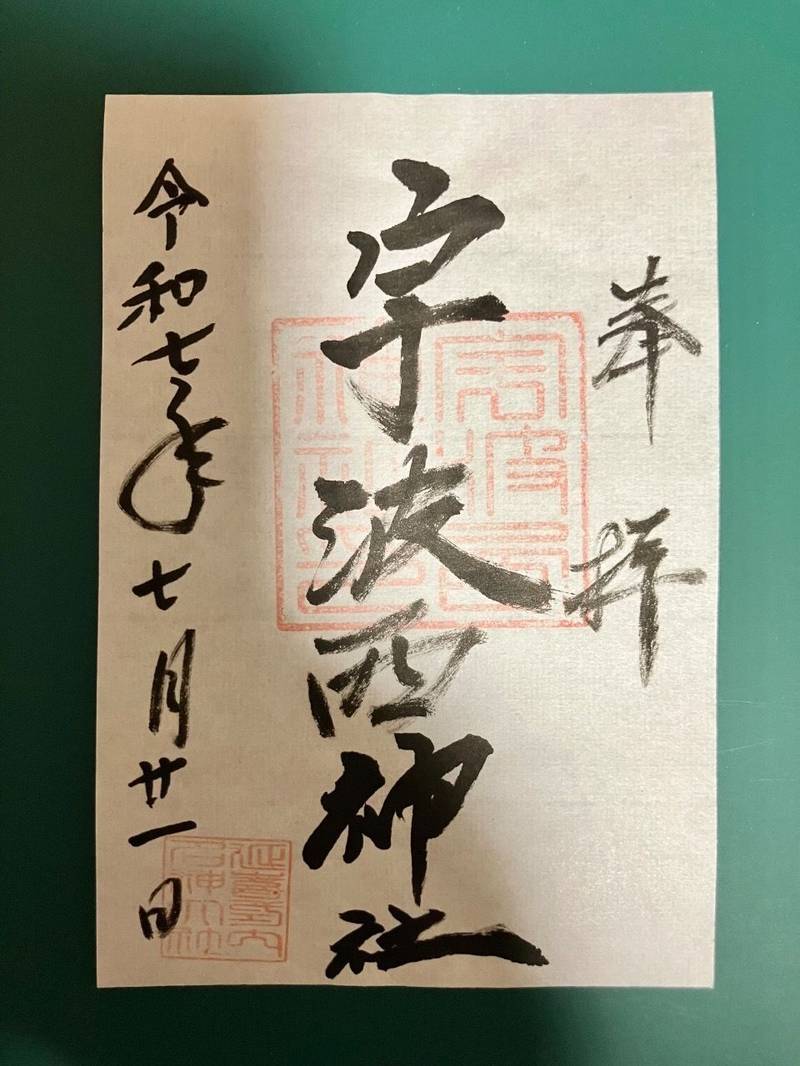 奉拝
宇波西神社
令和七年七月廿一日